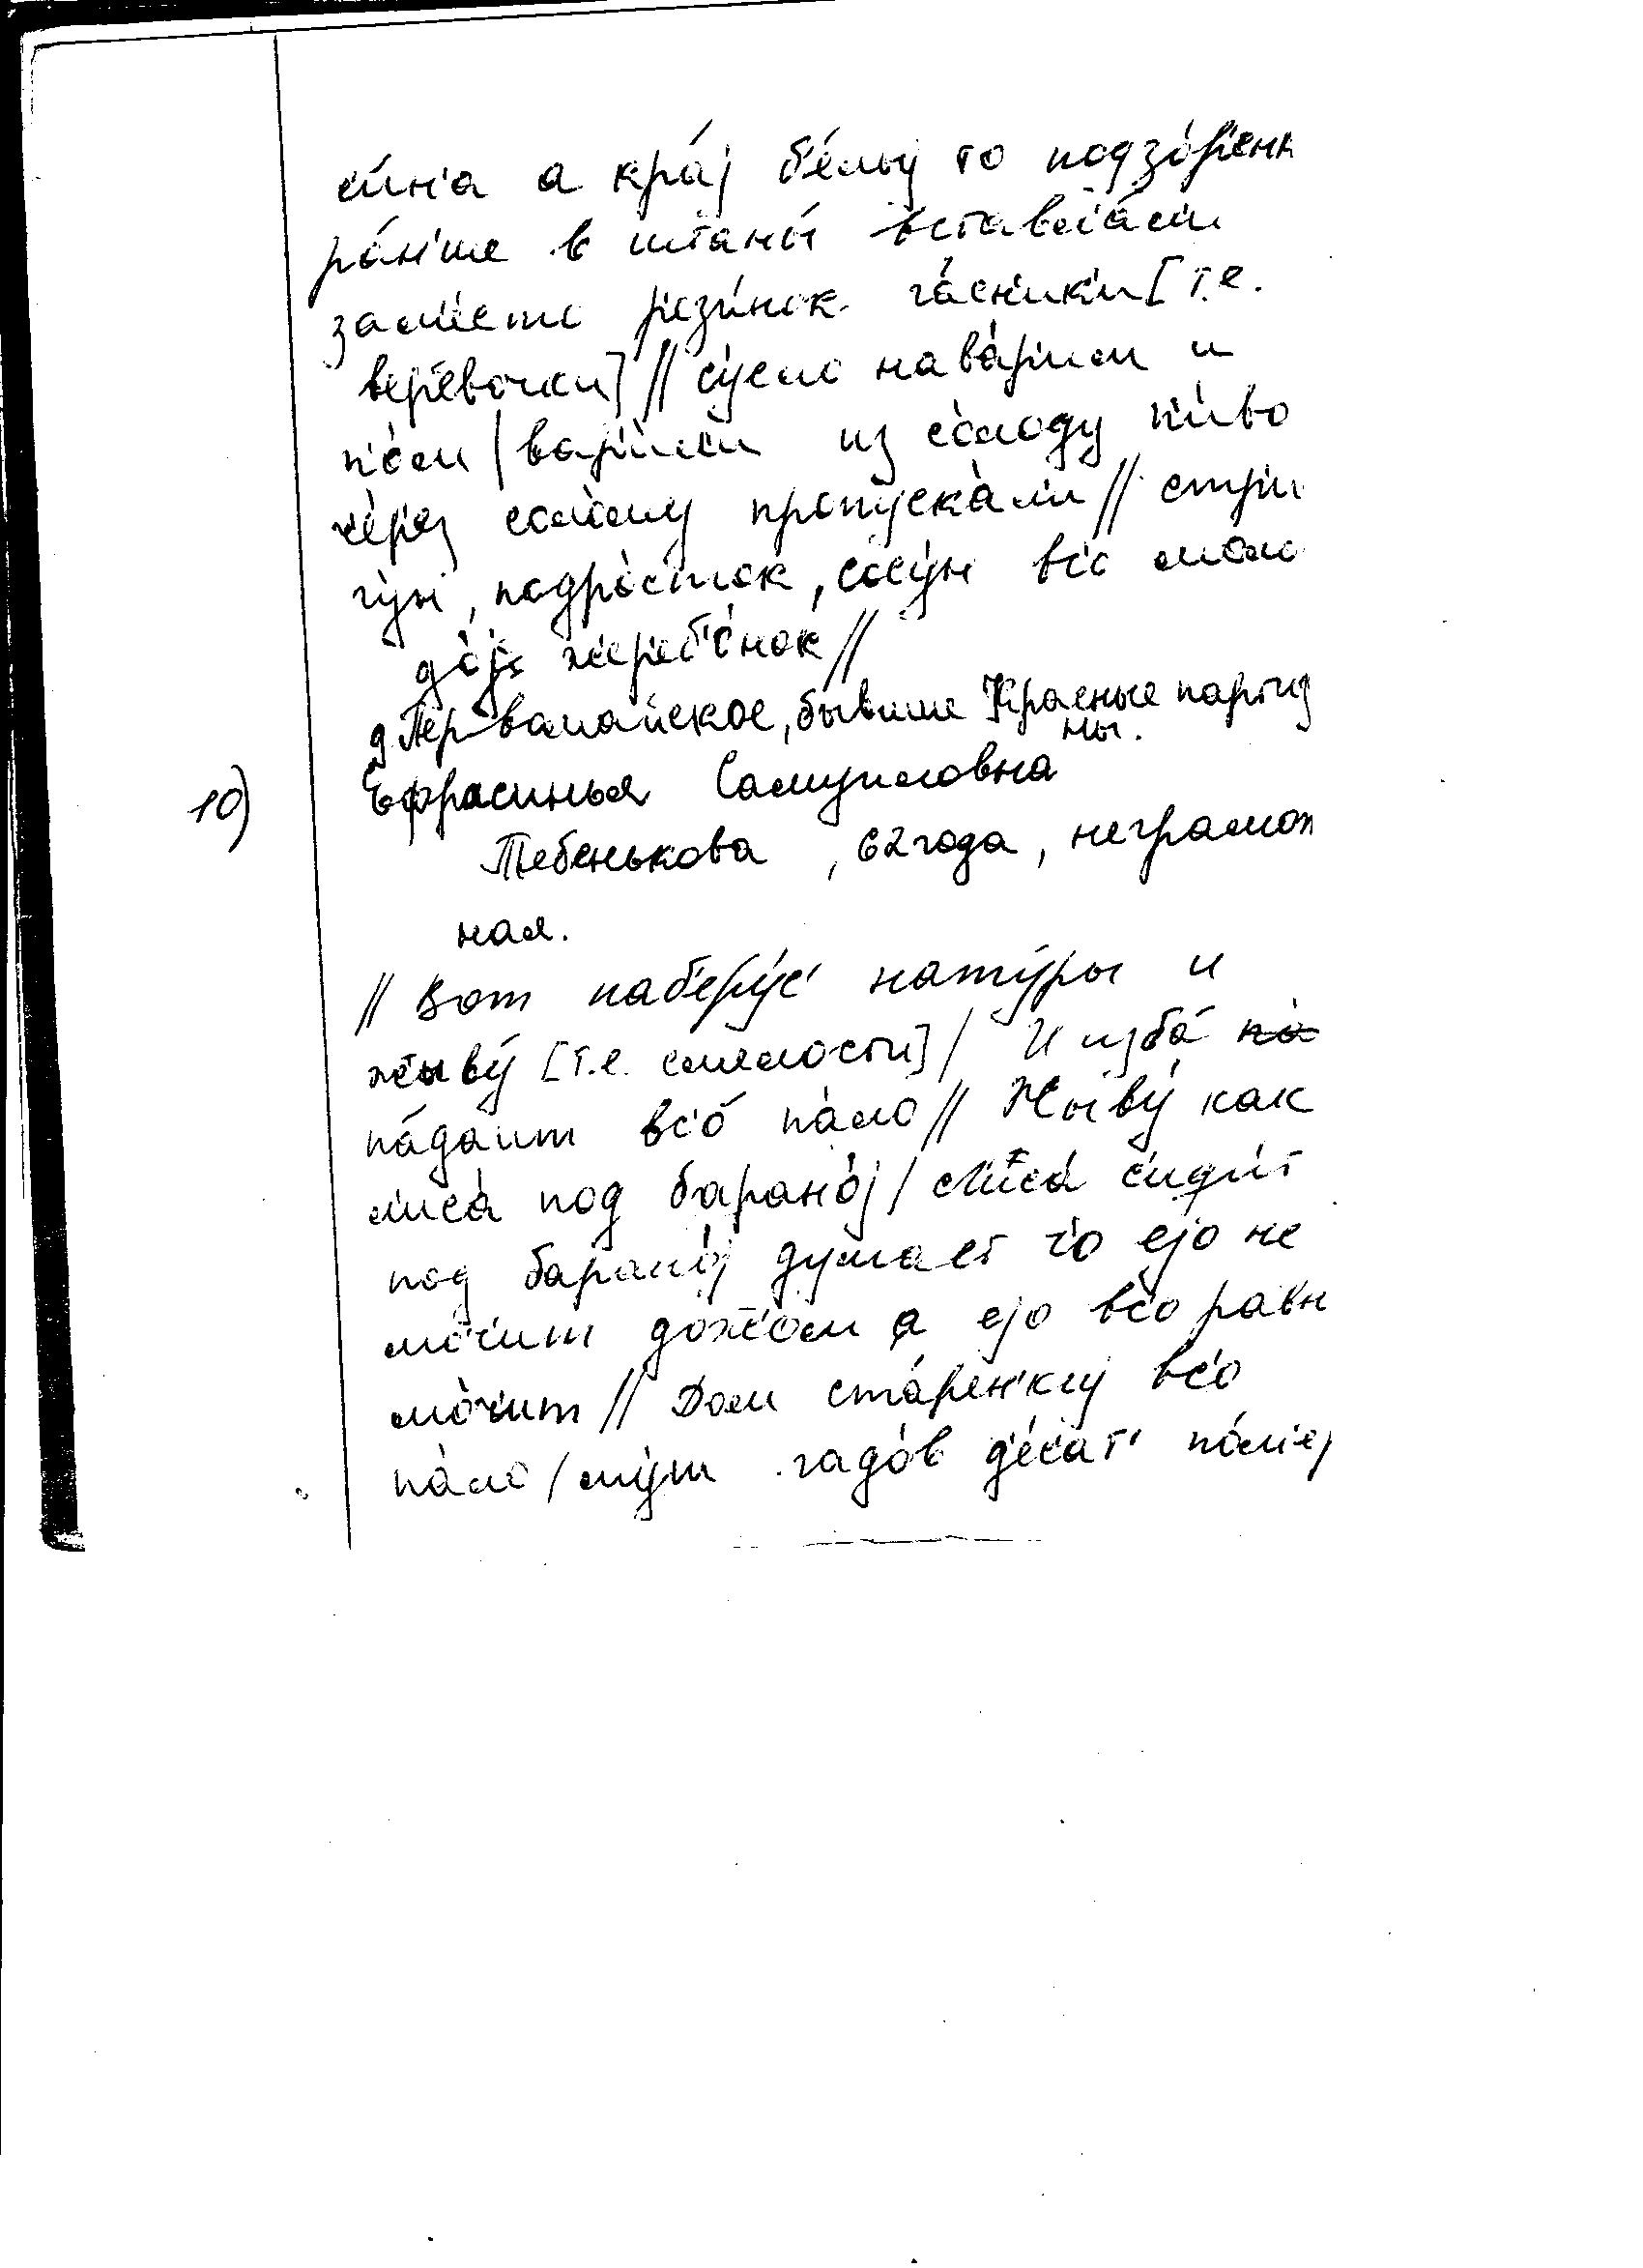 с'и́н'а а кра́j б'е́лыj то подзо́р'енк
ра́н'ше в штаны́ вставл'а́л'и
зам'есто р'ез'и́нок га́сн'ик'и [т.е.
вер'евочки] // су́сло нава́р'им и
п'о́м / вар'и́л'и из со́лоду п'и́во
че́р'ез соло́му пропуска́л'и // стри
гу́н, подро́сток, сосу́н вс'о моло
до́jе жереб'о́нок //
д. Первомайское, бывшие Красные партиз
ны.
10) Ефросинья Самуиловна
Тебенькова, 62 года, неграмот
ная.
// Вот наб'еру́с' нату́ры и
жыву́ [т.е. смелости] / И изба́ па
па́даит вс'о́ па́ло // Жыву́ как
лиса́ под баранój / Лиса́ с'иди́т
под баранój думает чо ejо не
мо́чит дожжо́м а ejо вс'о равн
мо́чит // Дом ста́рен'киj вс'о
па́ло / му́ш гадо́в д'е́с'ат' по́м'ер